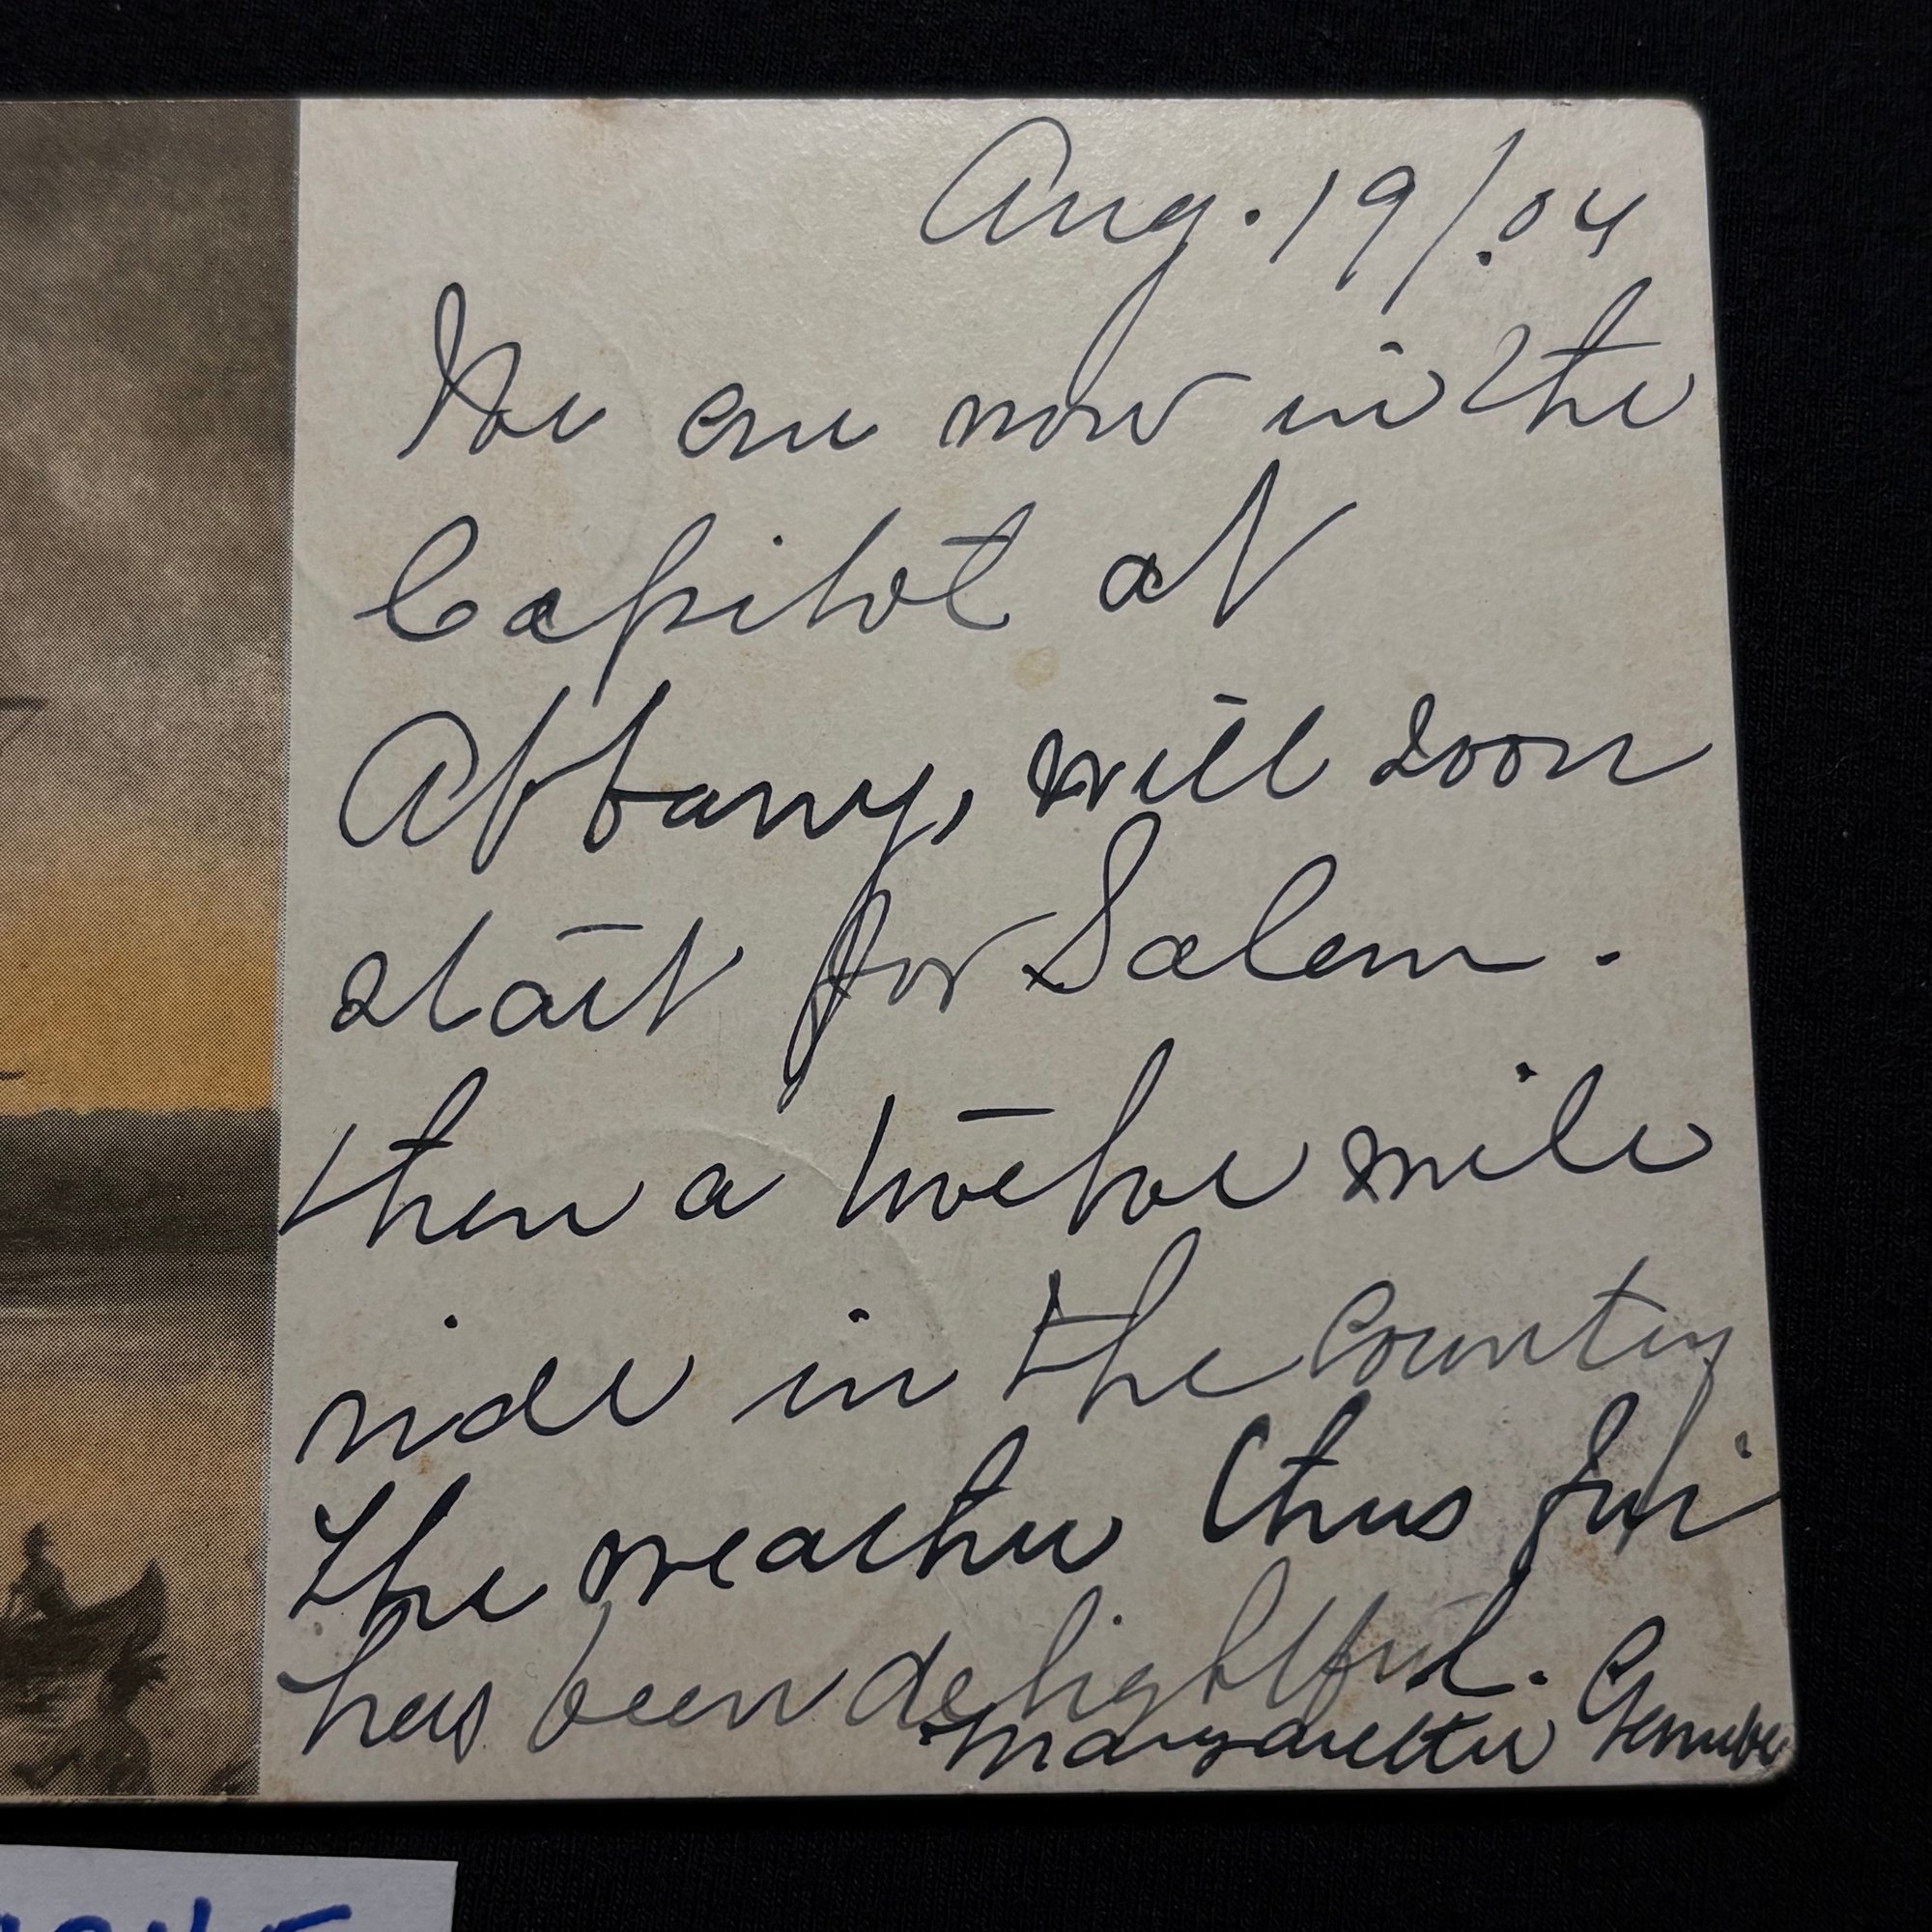 Aug. 19/.04
We are now in the
Capitol at
Albany, will soon
start for Salem.
then a twelve mile
ride in the country
The weather thus far
has been delightful.
Margarette